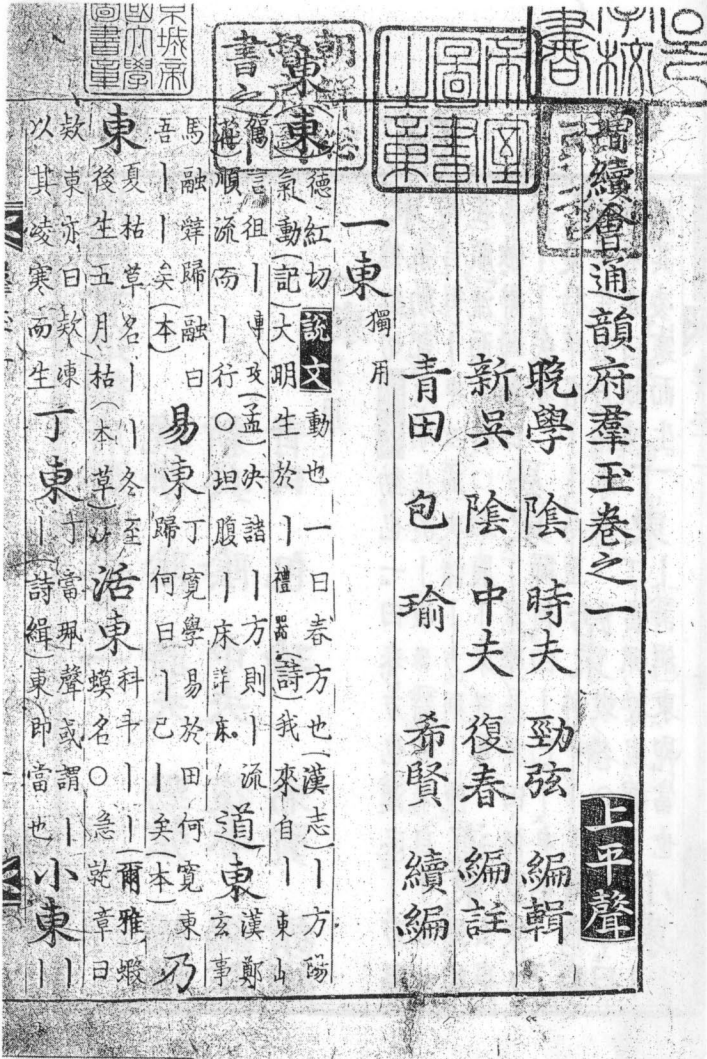 增續會通韻府羣玉卷之一 上平聲
晚學 陰 時夫 勁弦 編輯
新吳 陰 中夫 復春 編註
青田 包 瑜 希賢 續編
一東獨用
東德紅切說文動也一曰春方也漢志丨方陽
氣動記大明生於丨禮器詩我來自丨東山
駕言徂丨車攻孟決諸丨方則丨流
順流而丨行〇坦腹丨床詳床道東漢鄭玄事
馬融辭歸融曰易東丁寬學易於田何寬東乃
吾丨丨矣本歸何曰丨已丨矣本
東夏枯草名丨丨冬至
後生五月枯本草活東科斗丨丨爾雅蝦
蟆名〇急就章曰
款東亦曰款凍丁東丁當珮聲或謂丨
以其凌寒而生丨詩緝東即當也小東丨丨
帝室圖書之章